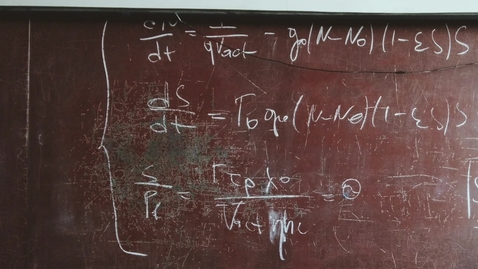 dN/dt = I/qVact - g₀(N-N₀)(1-εS)S
dS/dt = Γ₀g₀(N-N₀)(1-εS)S
S/Pf = Γτpλ₀/Vactηhc = ϑ